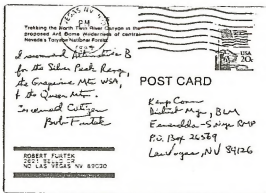 VEGAS NV
PM
Trekking the North Twin River Canyon in the
proposed Arc Dome Wilderness of central
Nevada's Toiyabe National Forest.
USA
20c
I recommend Alternative B
for the Silver Peak Range,
the Grapevine Mt. WSA,
& the Queer Mt.
Concerned Citizen
Bob Furtek
POST CARD
District Mgr, BLM
Esmeralda-S Nye RMP
P.O. Box 26569
Las Vegas, NV 89126
ROBERT FURTEK
NO LAS VEGAS NV 89030